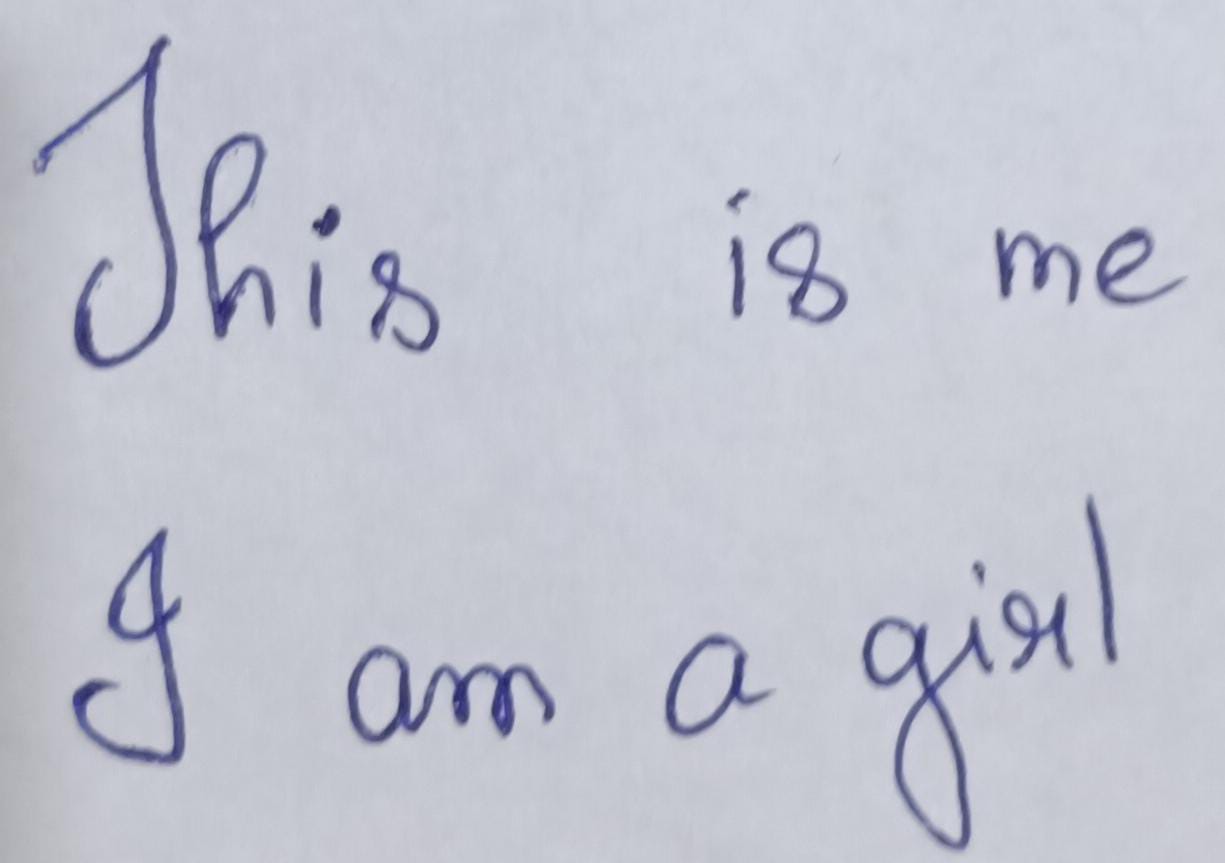 This is me
I am a girl